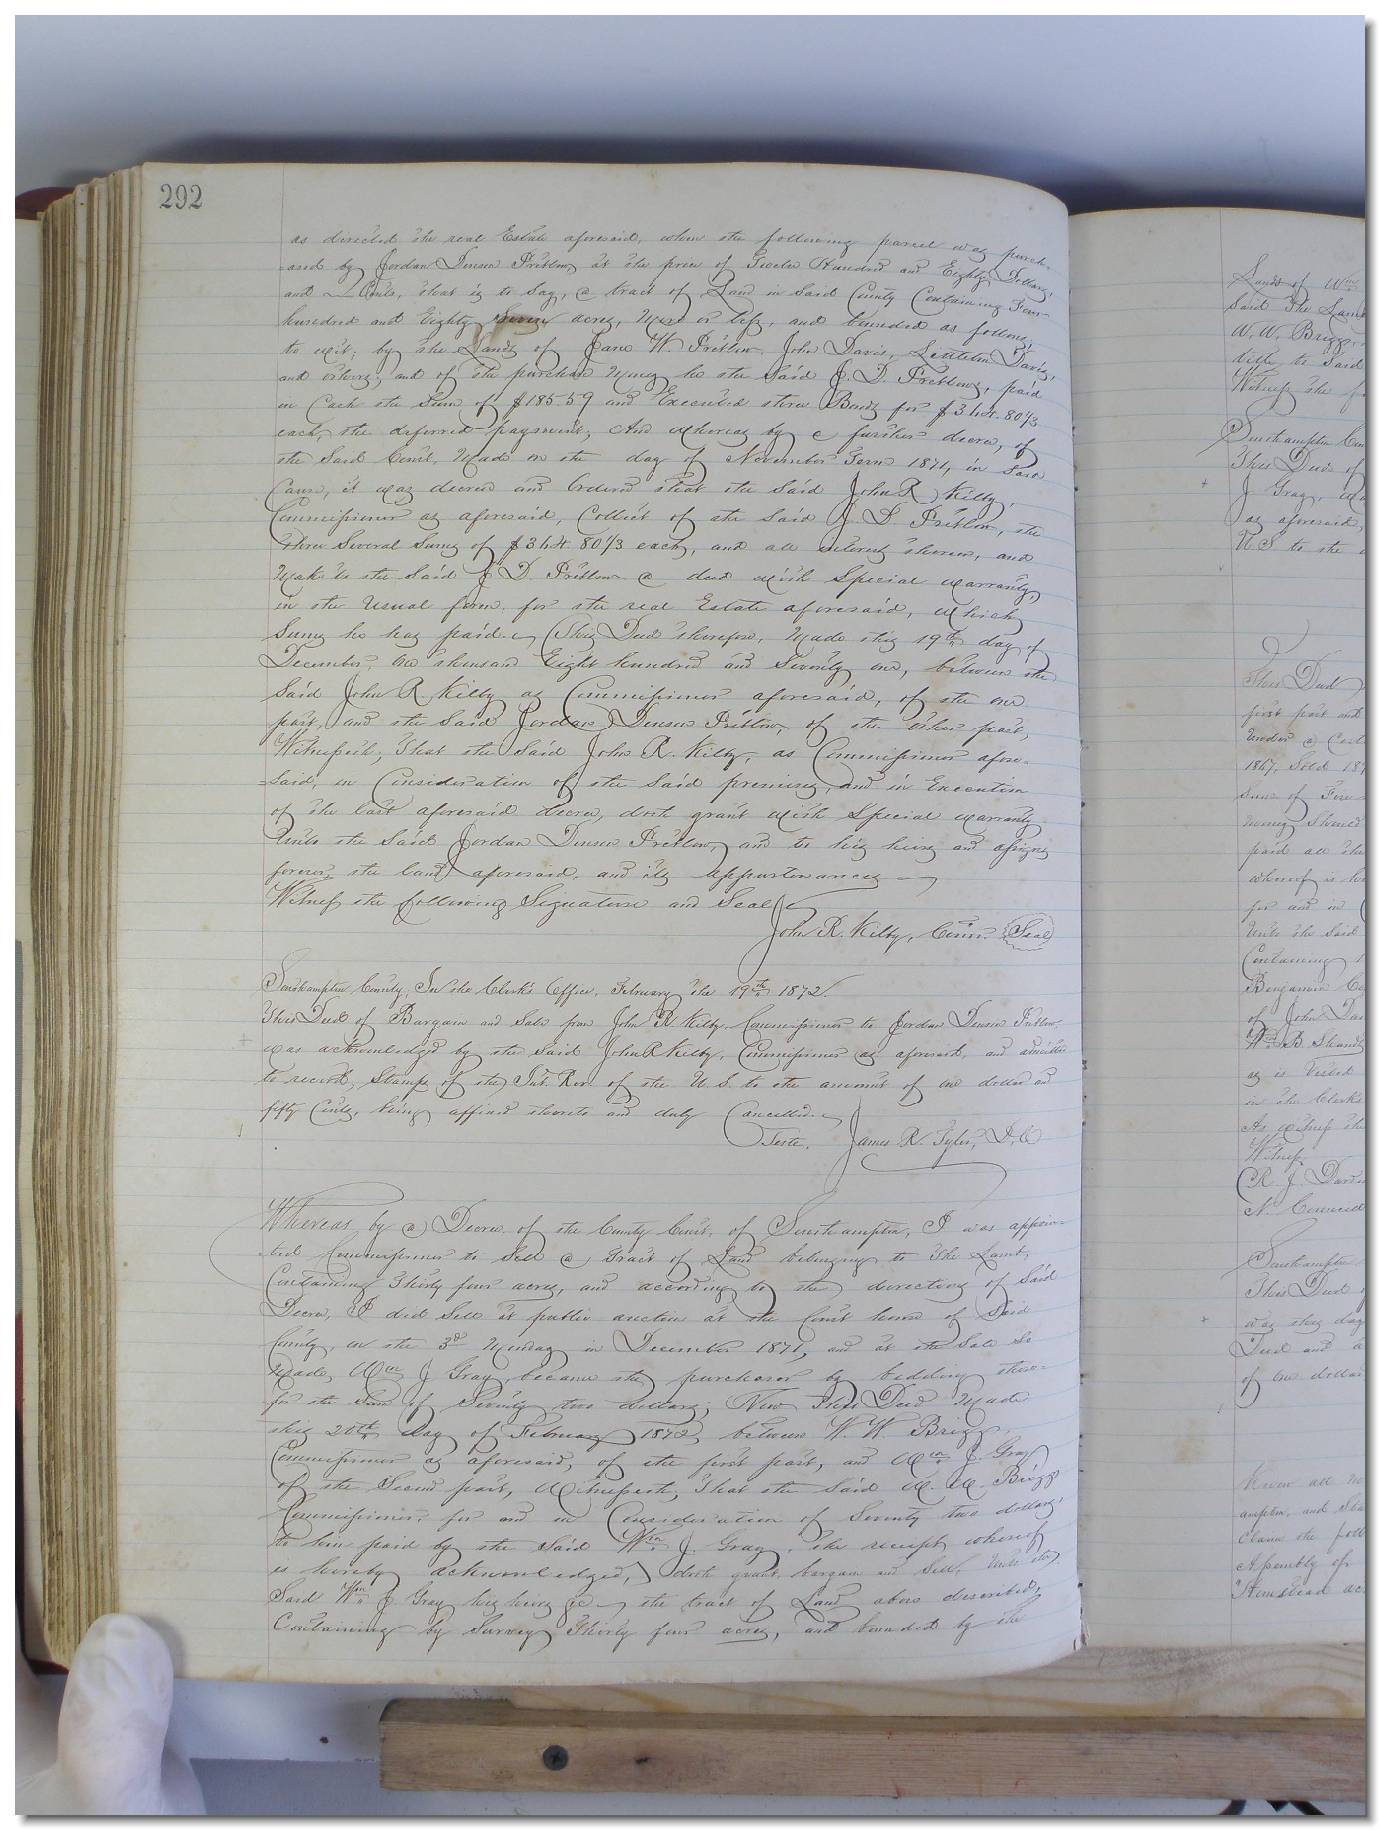 292
as directed the real Estate aforesaid, when the following parcel was purch-
-ased by Jordan Denson Pretlow at the price of Twelve Hundred and Eighty Dollars,
and Cents, that is to Say, a tract of Land in Said County Containing Four
hundred and Eighty Seven acres, More or less, and bounded as follows,
to wit; by the Lands of Jane W. Pretlow, John Davis, Littleton Davis,
and others; and of the purchase Money he the Said J. D. Pretlow, paid
in Cash the Sum of $185.59 and Executed three Bonds for $364.80 1/3
each, the deferred payments; And whereas by a further decree, of
the Said Court, Made on the day of November Term 1871, in Said
Cause, it was decreed and Ordered that the Said John R Kilby,
Commissioner as aforesaid, Collect of the Said J. D. Pretlow, the
three Several Sums of $364.80 1/3 each, and all interest thereon, and
Make to the Said J D. Pretlow a deed with Special warranty,
in the Usual form for the real Estate aforesaid, which
Sums he has paid. This Deed therefore, Made this 19th day of
December, One thousand Eight hundred and Seventy one, between the
Said John R Kilby as Commissioner aforesaid, of the one
part, and the Said Jordan Denson Pretlow, of the other part,
Witnesseth; that the Said John R. Kilby, as Commissioner afore-
-said, in Consideration of the Said premises, and in Execution
of the last aforesaid decree, doth grant with Special warranty
Unto the Said Jordan Denson Pretlow, and to his heirs and assigns
forever, the land aforesaid, and its appurtenances
Witness the following Signature and Seal
John R. Kilby, Comr. Seal
Southampton County, In the Clerk's Office, February the 19th 1872.
This Deed of Bargain and Sale from John R Kilby, Commissioner to Jordan Denson Pretlow,
was acknowledged by the said John R Kilby, Commissioner as aforesaid, and admitted
to record, Stamps of the Int. Rev. of the U. S. to the amount of one dollar and
fifty Cents, being affixed thereto and duly Cancelled.
Teste, James R. Tyler, D.C
Whereas, by a Decree of the County Court, of Southampton, I was appoin-
-ted Commissioner to Sell a Tract of Land belonging to The Lamb,
Containing Thirty four acres, and according to the directions of Said
Decree, I did Sell at public auction at the Court house of Said
County, on the 3d Monday in December 1871, and at the Sale So
Made, Wm J Gray, became the purchaser by bidding there-
for the Sum of Seventy two dollars; Now This Deed Made
this 20th Day of February 1872, between W. W. Briggs,
Commissioner as aforesaid, of the first part, and Wm J Gray
of the Second part, Witnesseth; That the Said W. W. Briggs
Commissioner, for and in Consideration of Seventy two dollars,
to him paid by the Said Wm J. Gray, the receipt whereof
is hereby acknowledged, doth grant, bargain and Sell, Unto the
Said Wm J Gray his heirs &c the tract of Land above described,
Containing by Survey Thirty four acres, and bounded by the
Lands of Wm
Said The Lamb
W. W. Briggs,
title to Said
Witness the f
Southampton Coun
This Deed of
J Gray, wa
as aforesaid,
U S to the a
This Deed
first part and
Under a Cert
1867, Sold 187
Sum of Five
money Should
paid all the
whereof is he
for and in
Unto the Said
Containing
Benjamin Co
of John Dav
Wm B. Shands
as is Vested
in the Clerks
As witness the
Witness
R. J. Davis
N.
Southampton
This Deed
was this day
Deed and a
of One dollar
Know all
ampton, and Sta
Claim the foll
Assembly of
"Homestead ac